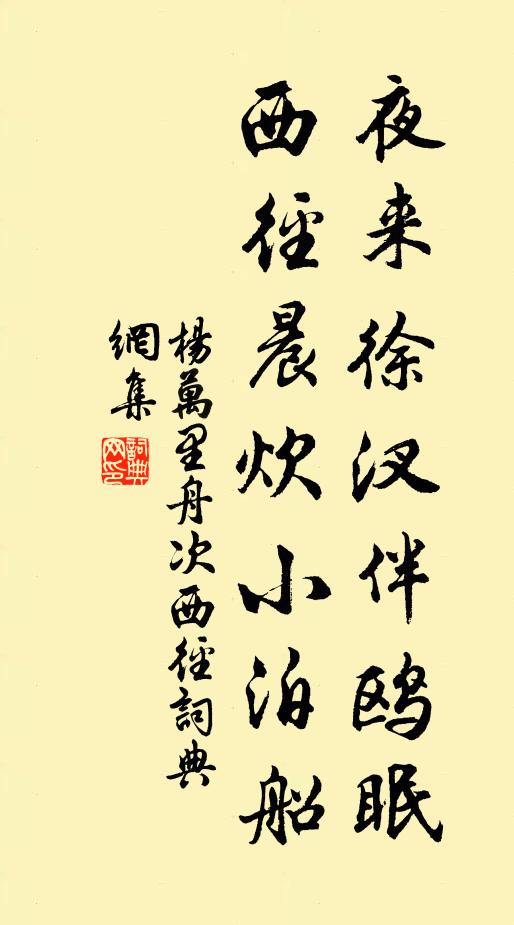 夜来徐汊伴鸥眠
西径晨炊小泊船
楊萬里舟次西径詞典
網集
詞典
网印